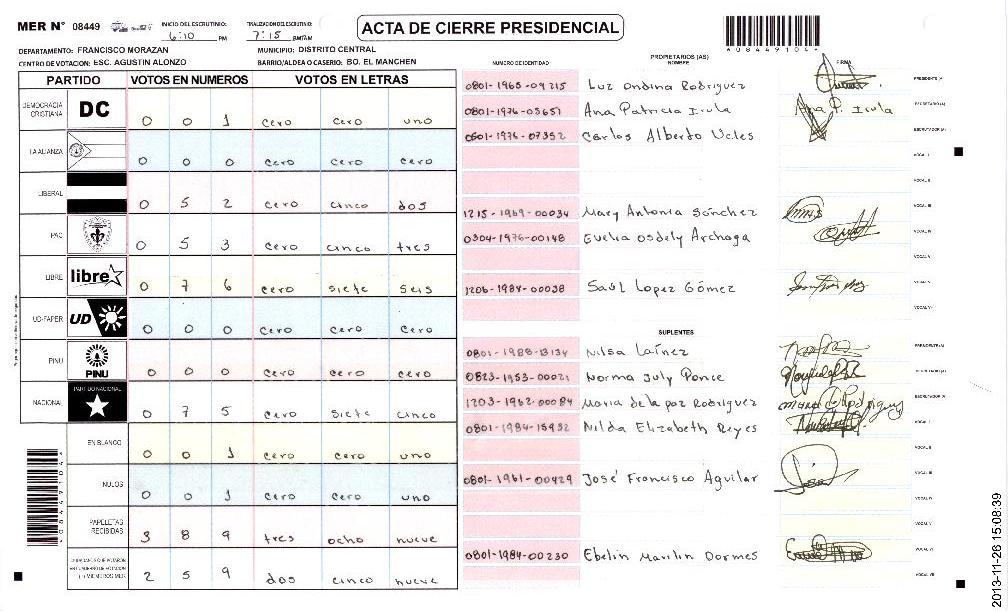 MER N° 08449
INICIO DEL ESCRUTINIO: 6:10 PM
FINALIZACION ESCRUTINIO: 7:15 PM/7AM
ACTA DE CIERRE PRESIDENCIAL
*08449104*
DEPARTAMENTO: FRANCISCO MORAZAN
MUNICIPIO: DISTRITO CENTRAL
CENTRO DE VOTACION: ESC. AGUSTIN ALONZO
BARRIO/ALDEA O CASERIO: BO. EL MANCHEN
PARTIDO VOTOS EN NUMEROS VOTOS EN LETRAS
DEMOCRACIA CRISTIANA DC 0 0 1 cero cero uno
LA ALIANZA 0 0 0 cero cero cero
LIBERAL 0 5 2 cero cinco dos
PAC 0 5 3 cero cinco tres
LIBRE libre 0 7 6 cero siete seis
UD-FAPER UD 0 0 0 cero cero cero
PINU PINU 0 0 0 cero cero cero
NACIONAL PARTIDO NACIONAL 0 7 5 cero siete cinco
EN BLANCO 0 0 1 cero cero uno
NULOS 0 0 1 cero cero uno
PAPELETAS RECIBIDAS 3 8 9 tres ocho nueve
CIUDADANOS QUE VOTARON EN CUADERNO DE VOTACION (+) MIEMBROS MER 2 5 9 dos cinco nueve
NUMERO DE IDENTIDAD
PROPIETARIOS (AS)
NOMBRE
FIRMA
0801-1965-09215 Luz Ondina Rodriguez PRESIDENTE (A)
0801-1976-03657 Ana Patricia Irula Ana P. Irula SECRETARIO (A)
0601-1976-07352 Carlos Alberto Ucles ESCRUTADOR (A)
VOCAL I
VOCAL II
1215-1969-00034 Mary Antonia Sánchez VOCAL III
0304-1976-00148 Evelia Osdely Archaga VOCAL IV
VOCAL V
1206-1984-00038 Saúl Lopez Gómez
SUPLENTES
0801-1988-13134 Nilsa Laínez PRESIDENTE (A)
0823-1953-00021 Norma July Ponce SECRETARIO (A)
1203-1962-00084 Maria de la paz Rodriguez ESCRUTADOR (A)
0801-1984-15952 Nilda Elizabeth Reyes VOCAL I
VOCAL II
0801-1961-00429 José Francisco Aguilar VOCAL III
VOCAL IV
VOCAL V
0801-1984-00230 Ebelin Marilin Dormes VOCAL VI
VOCAL VII
*08449104*
2013-11-26 15:08:39